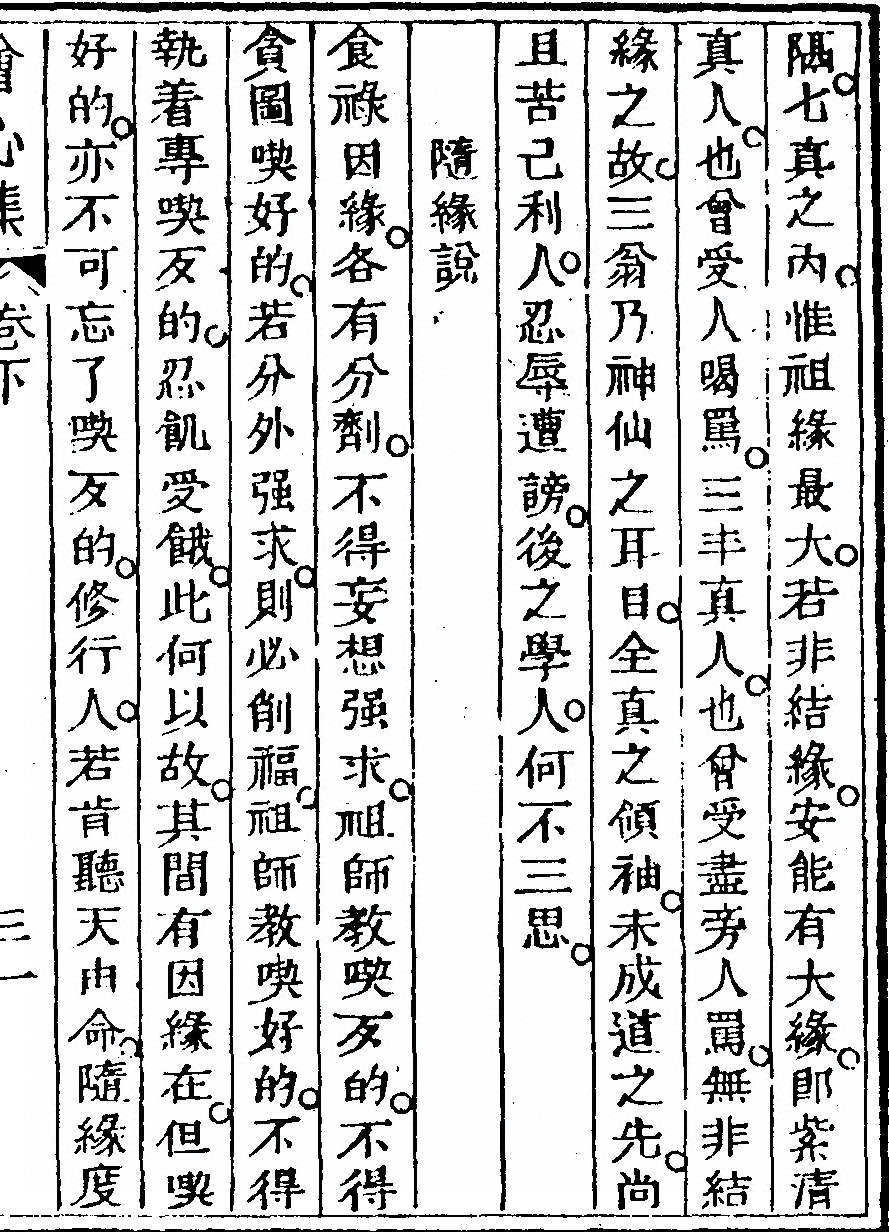 隅。七真之內。惟祖緣最大。若非結緣。安能有大緣。即紫清
真人。也曾受人喝罵。三丰真人。也曾受盡旁人罵。無非結
緣之故。三翁乃神仙之耳目。全真之領袖。未成道之先。尚
且苦己利人。忍辱遭謗。後之學人。何不三思。
隨緣說
食祿因緣。各有分劑。不得妄想强求。祖師教喫歹的。不得
貪圖喫好的。若分外强求。則必削福。祖師教喫好的。不得
執着專喫歹的。忍飢受餓。此何以故。其間有因緣在。但喫
好的。亦不可忘了喫歹的。修行人。若肯聽天由命。隨緣度
會心集 卷下 三一